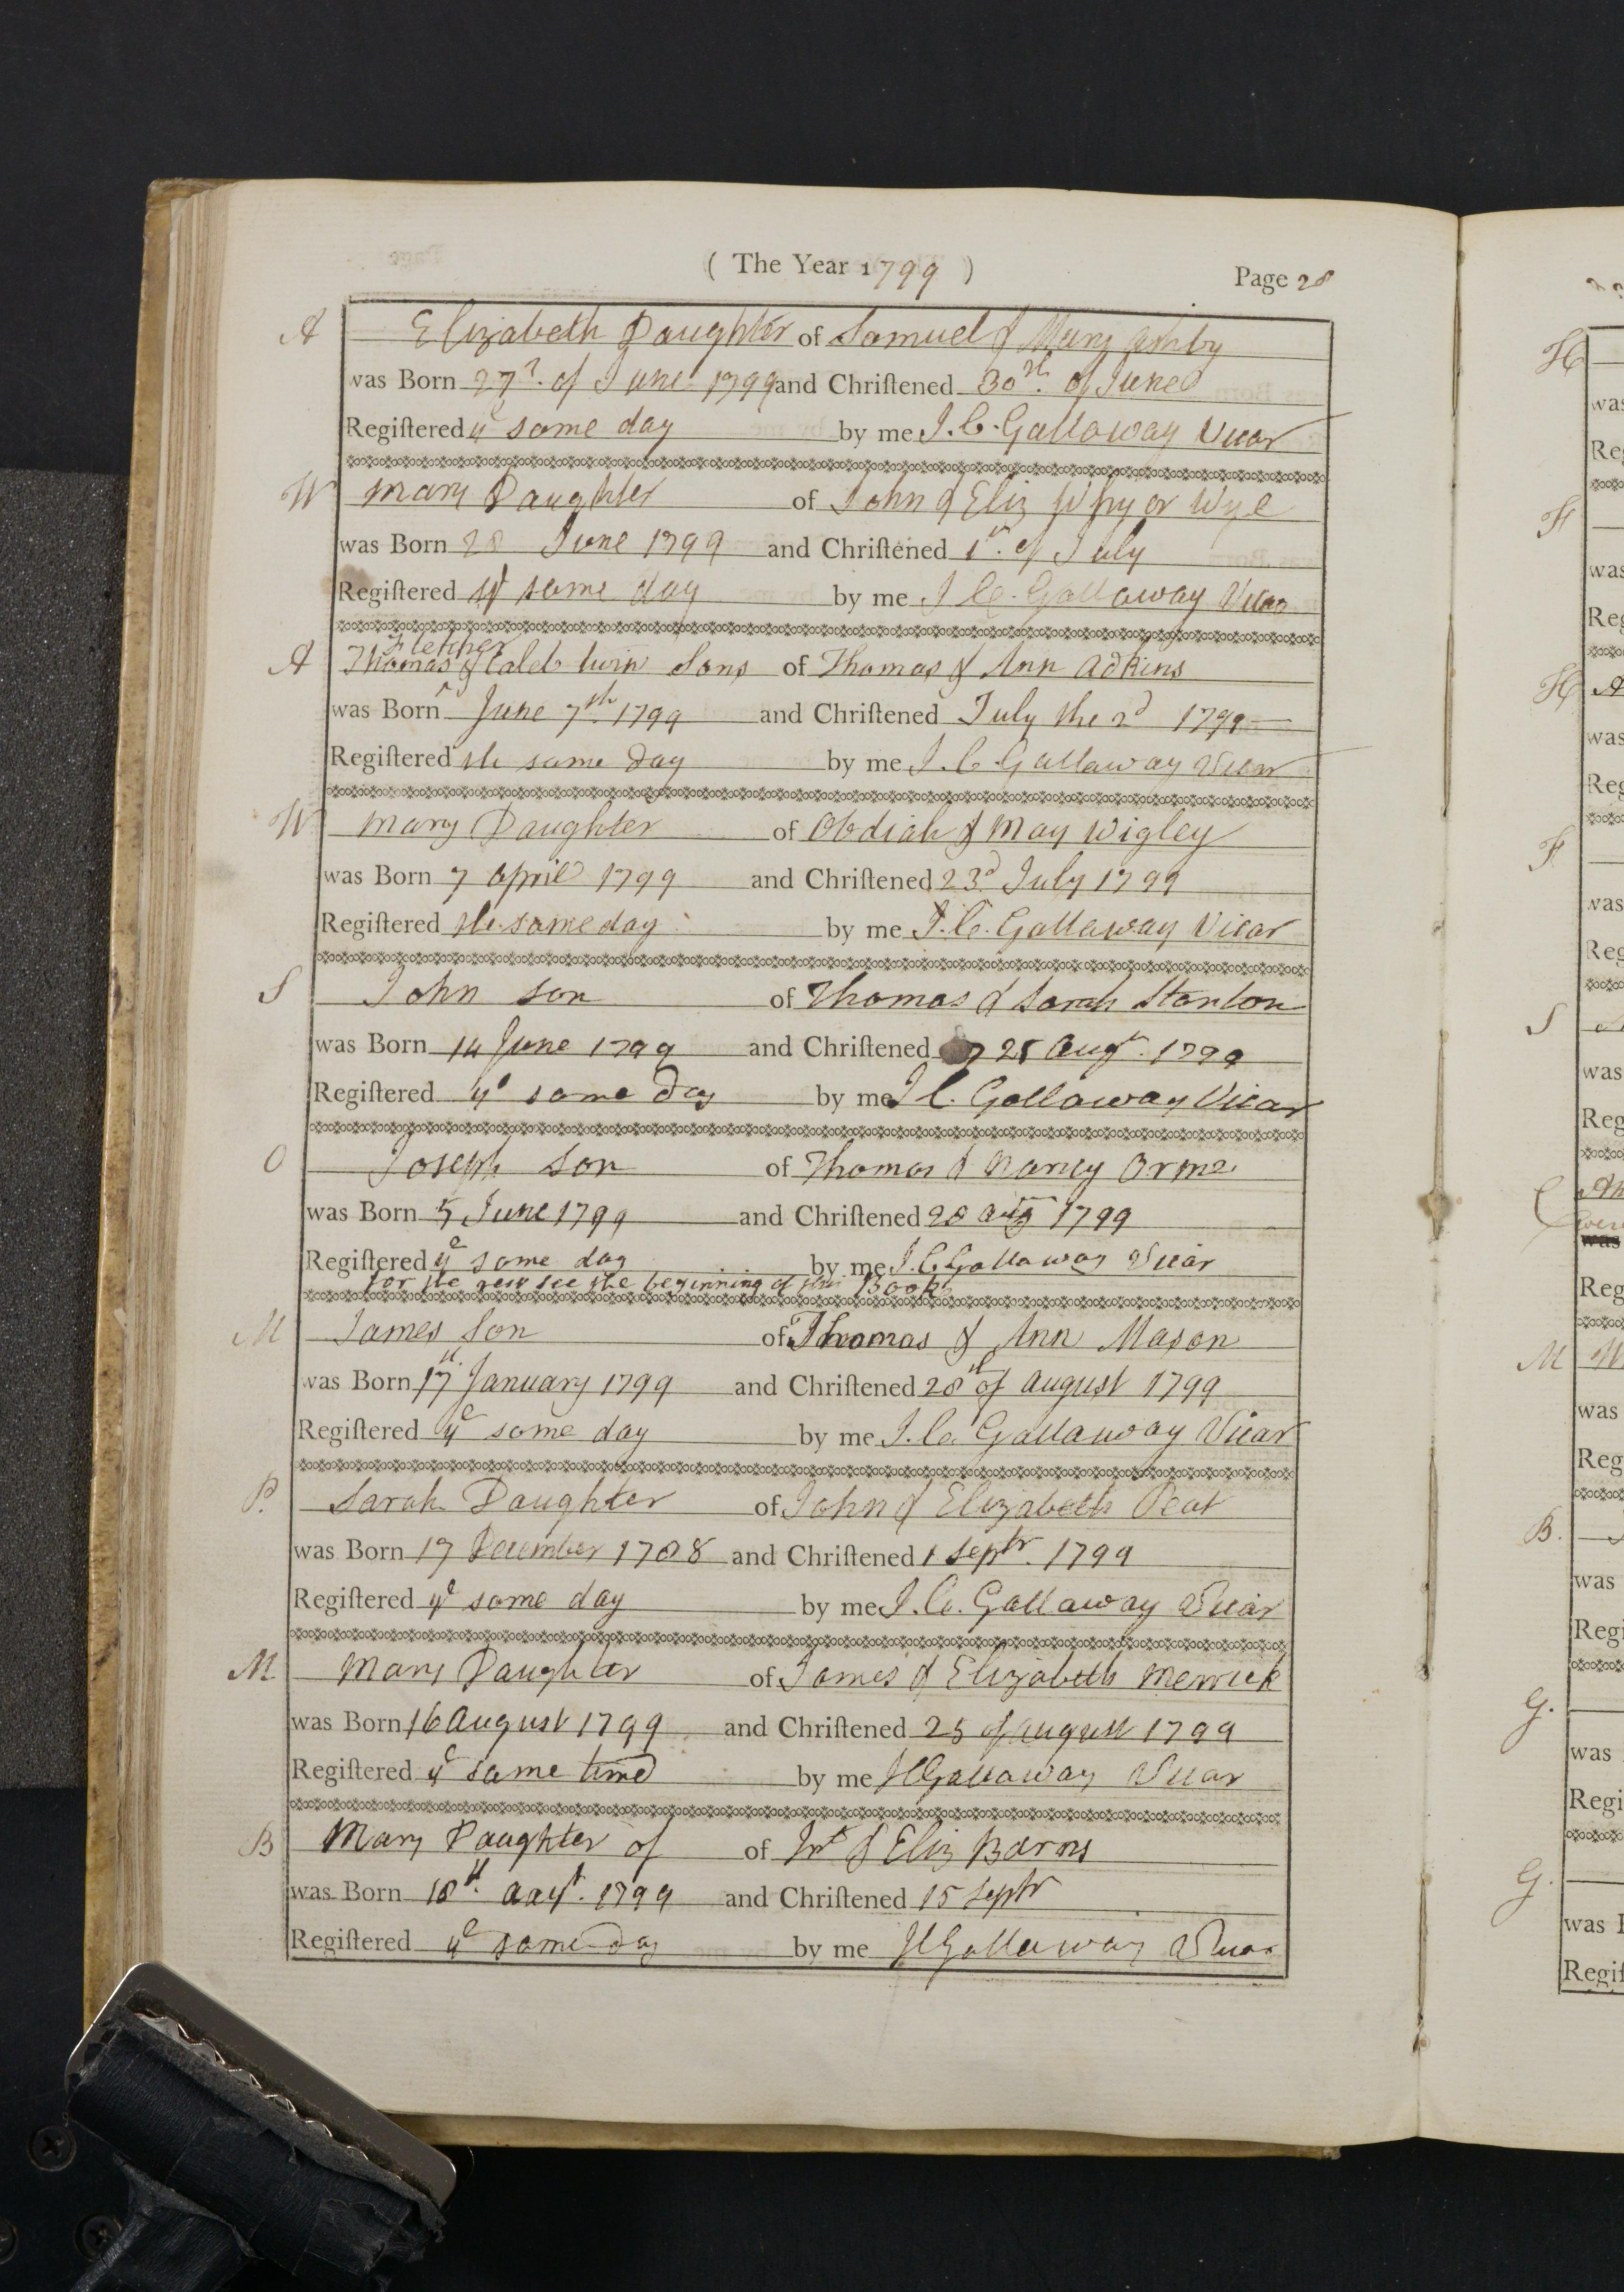 ( The Year 1799 )
Page 28
A
Elizabeth Daughter of Samuel & Mary Ashby
was Born 27th. of June 1799 and Chriſtened 30th. of June
Regiſtered ye same day by me J. C. Gallaway Vicar
W
Mary Daughter of John & Eliz Why or Wye
was Born 28 June 1799 and Chriſtened 1st. of July
Regiſtered ye same day by me J C. Gallaway Vicar
Fletcher
A
Thomas & Caleb twin Sons of Thomas & Ann Adkins
was Born June 7th. 1799 and Chriſtened July the 2d 1799
Regiſtered the same day by me J. C. Gallaway Vicar
W
Mary Daughter of Obdiah & May Wigley
was Born 7 April 1799 and Chriſtened 23d July 1799
Regiſtered the same day by me J. C. Gallaway Vicar
S
John Son of Thomas & Sarah Stanton
was Born 14 June 1799 and Chriſtened 25 Augt. 1799
Regiſtered ye same day by me J C. Gallaway Vicar
O
Joseph Son of Thomas & Nancy Orme
was Born 5 June 1799 and Chriſtened 28 Aug 1799
Regiſtered ye same day by me J. C Gallaway Vicar
for the see the beginning of this Book
M
James Son of Thomas & Ann Mason
was Born 17th. January 1799 and Chriſtened 28th of August 1799
Regiſtered ye same day by me J. C. Gallaway Vicar
P.
Sarah Daughter of John & Elizabeth Peat
was Born 17 December 1798 and Chriſtened 1 Septr. 1799
Regiſtered ye same day by me J. C. Gallaway Vicar
M
Mary Daughter of James & Elizabeth Merrick
was Born 16 August 1799 and Chriſtened 25 of August 1799
Regiſtered ye same time by me JC Gallaway Vicar
B
Mary Daughter of of Wm & Eliz Barns
was Born 18th. Augt. 1799 and Chriſtened 15 Septr
Regiſtered ye same day by me JC Gallaway Vicar
H
was
Reg
H
was
Reg
H
was
Reg
F
was
Reg
S
was
Reg
C
were
was
Reg
M
was
Reg
B.
was
Regi
G.
was
Regi
G.
was
Regiſ